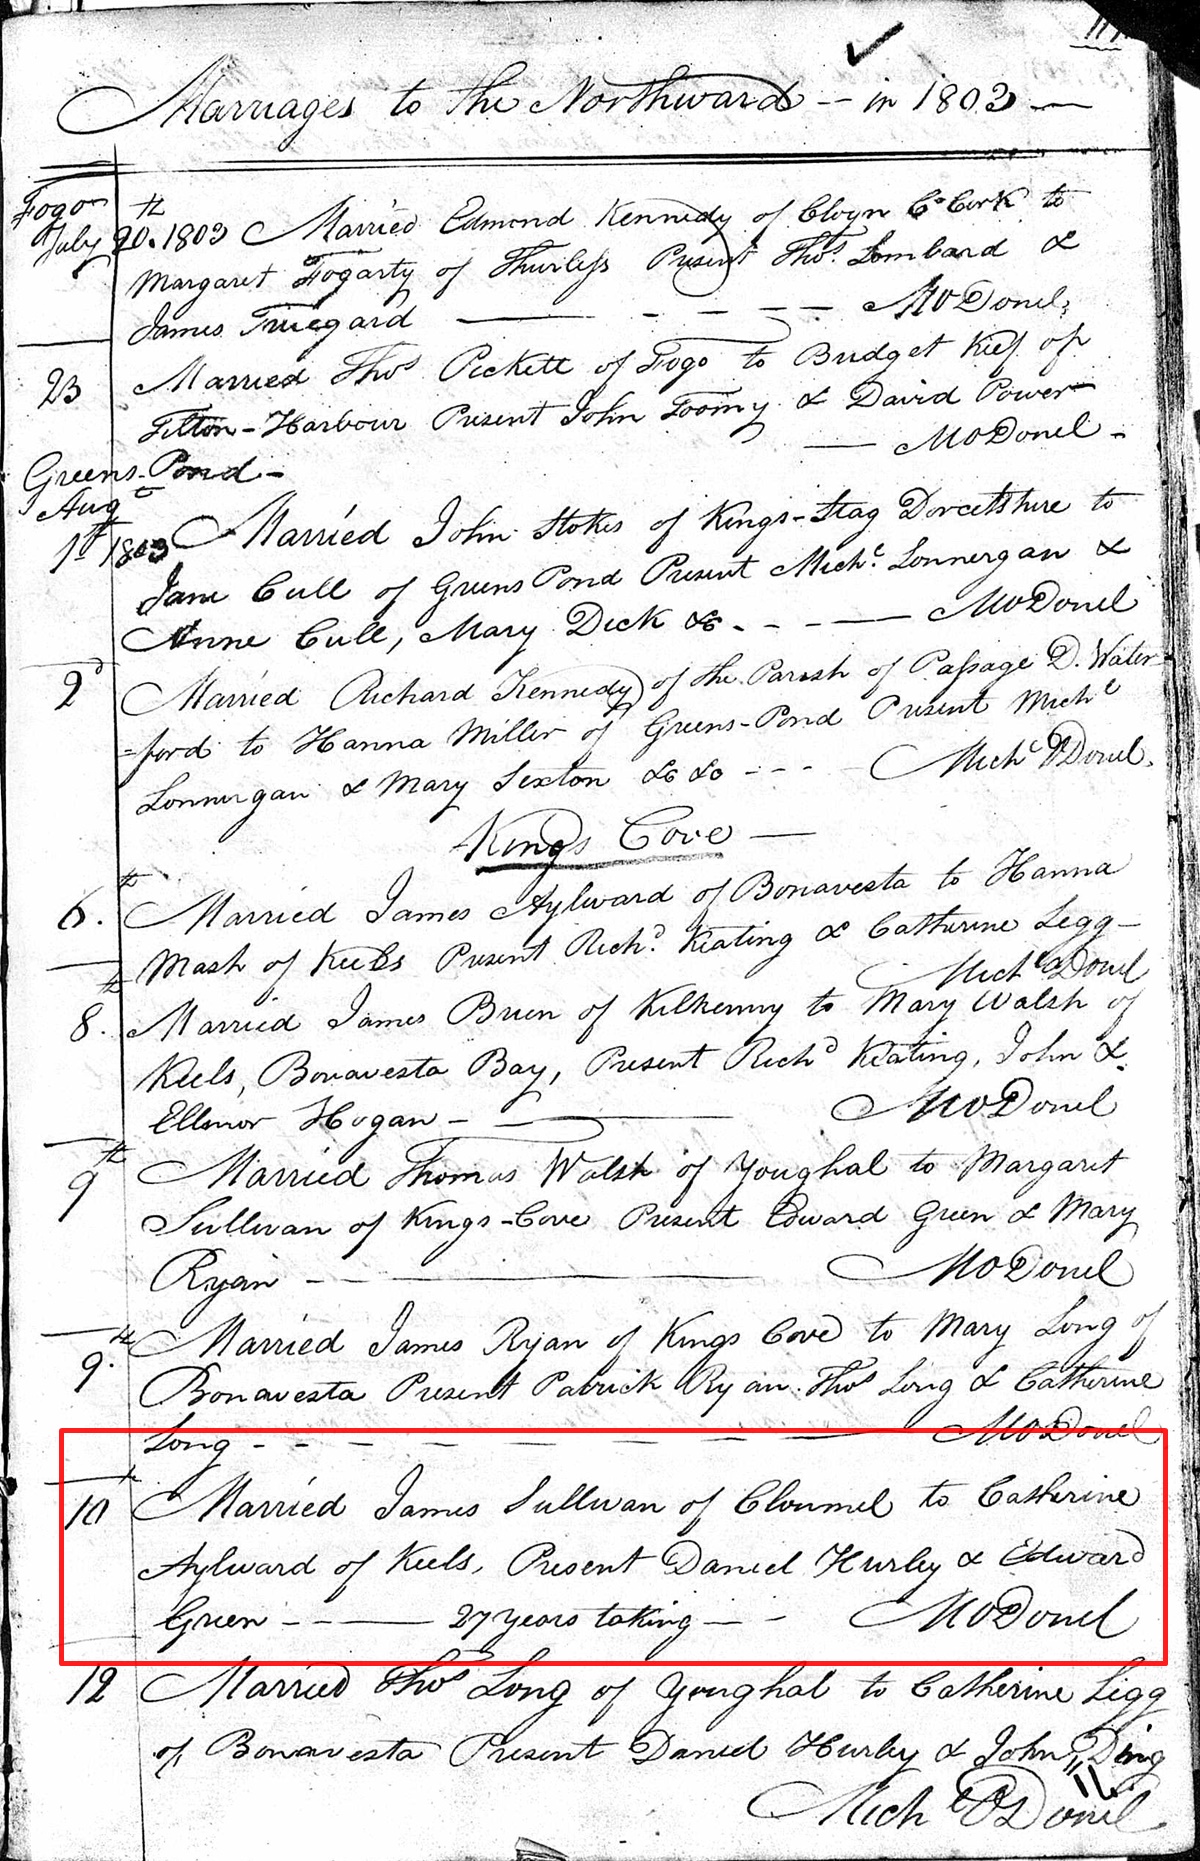 Marriages to the Northward -- in 1803 --
Fogo
July 20.th 1803 Married Edmond Kennedy of Cloyn Co Cork to
Margaret Fogarty of Thurless Present Thos. Lombard &
James Truegard -- - - -- MODonel,
23 Married Thos Pickett of Fogo to Bridget Kief of
Tilton-Harbour Present John Toomy & David Power
-- MODonel -
Greens-Pond -
Aug
1st 1803 Married John Stokes of Kings-Stag Dorcetshire to
Jane Cull of Greens Pond Present Michl. Lonnergan &
Anne Cull, Mary Dick &c. - - -- MODonel
2d Married Richard Kennedy of the Parish of Passage D. Water-
=ford to Hanna Miller of Greens-Pond Present Michl
Lonnergan & Mary Sexton &c &c - - - Michl ODonel.
Kings Cove --
6.th Married James Aylward of Bonavesta to Hanna
Mash of Keels Present Richd. Keating & Catherine Legg -
Michl ODonel
8.th Married James Brien of Kilkenny to Mary Walsh of
Keels, Bonavesta Bay, Present Richd Keating, John &
Ellenor Hogan - -- MODonel
9th Married Thomas Walsh of Youghal to Margaret
Sullivan of Kings-Cove Present Edward Green & Mary
Ryan - -- MODonel
9.th Married James Ryan of Kings Cove to Mary Long of
Bonavesta Present Patrick Ryan Thos Long & Catherine
Long - - - - - - - -- MODonel
10th Married James Sullivan of Clonmel to Catherine
Aylward of Keels, Present Daniel Hurley & Edward
Green - -- 27 Years taking - - MODonel
12 Married Thos Long of Youghal to Catherine Legg
of Bonavesta Present Daniel Hurley & John Ding
Michl ODonel